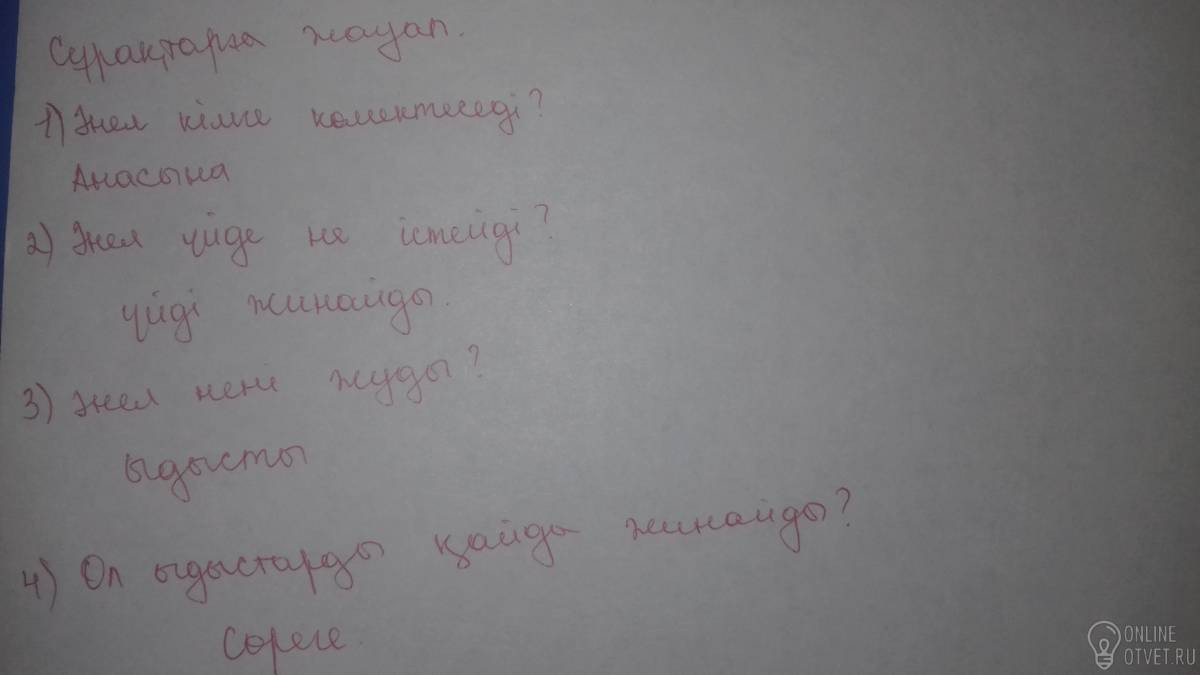 Сұрақтарға жауап.
1) Әнел кімге көмектеседі?
Анасына
2) Әнел үйде не істейді?
үйді жинайды.
3) Әнел нені жуды?
ыдысты
4) Ол ыдыстарды қайда жинайды?
Сөреге.
ONLINE
OTVET.RU